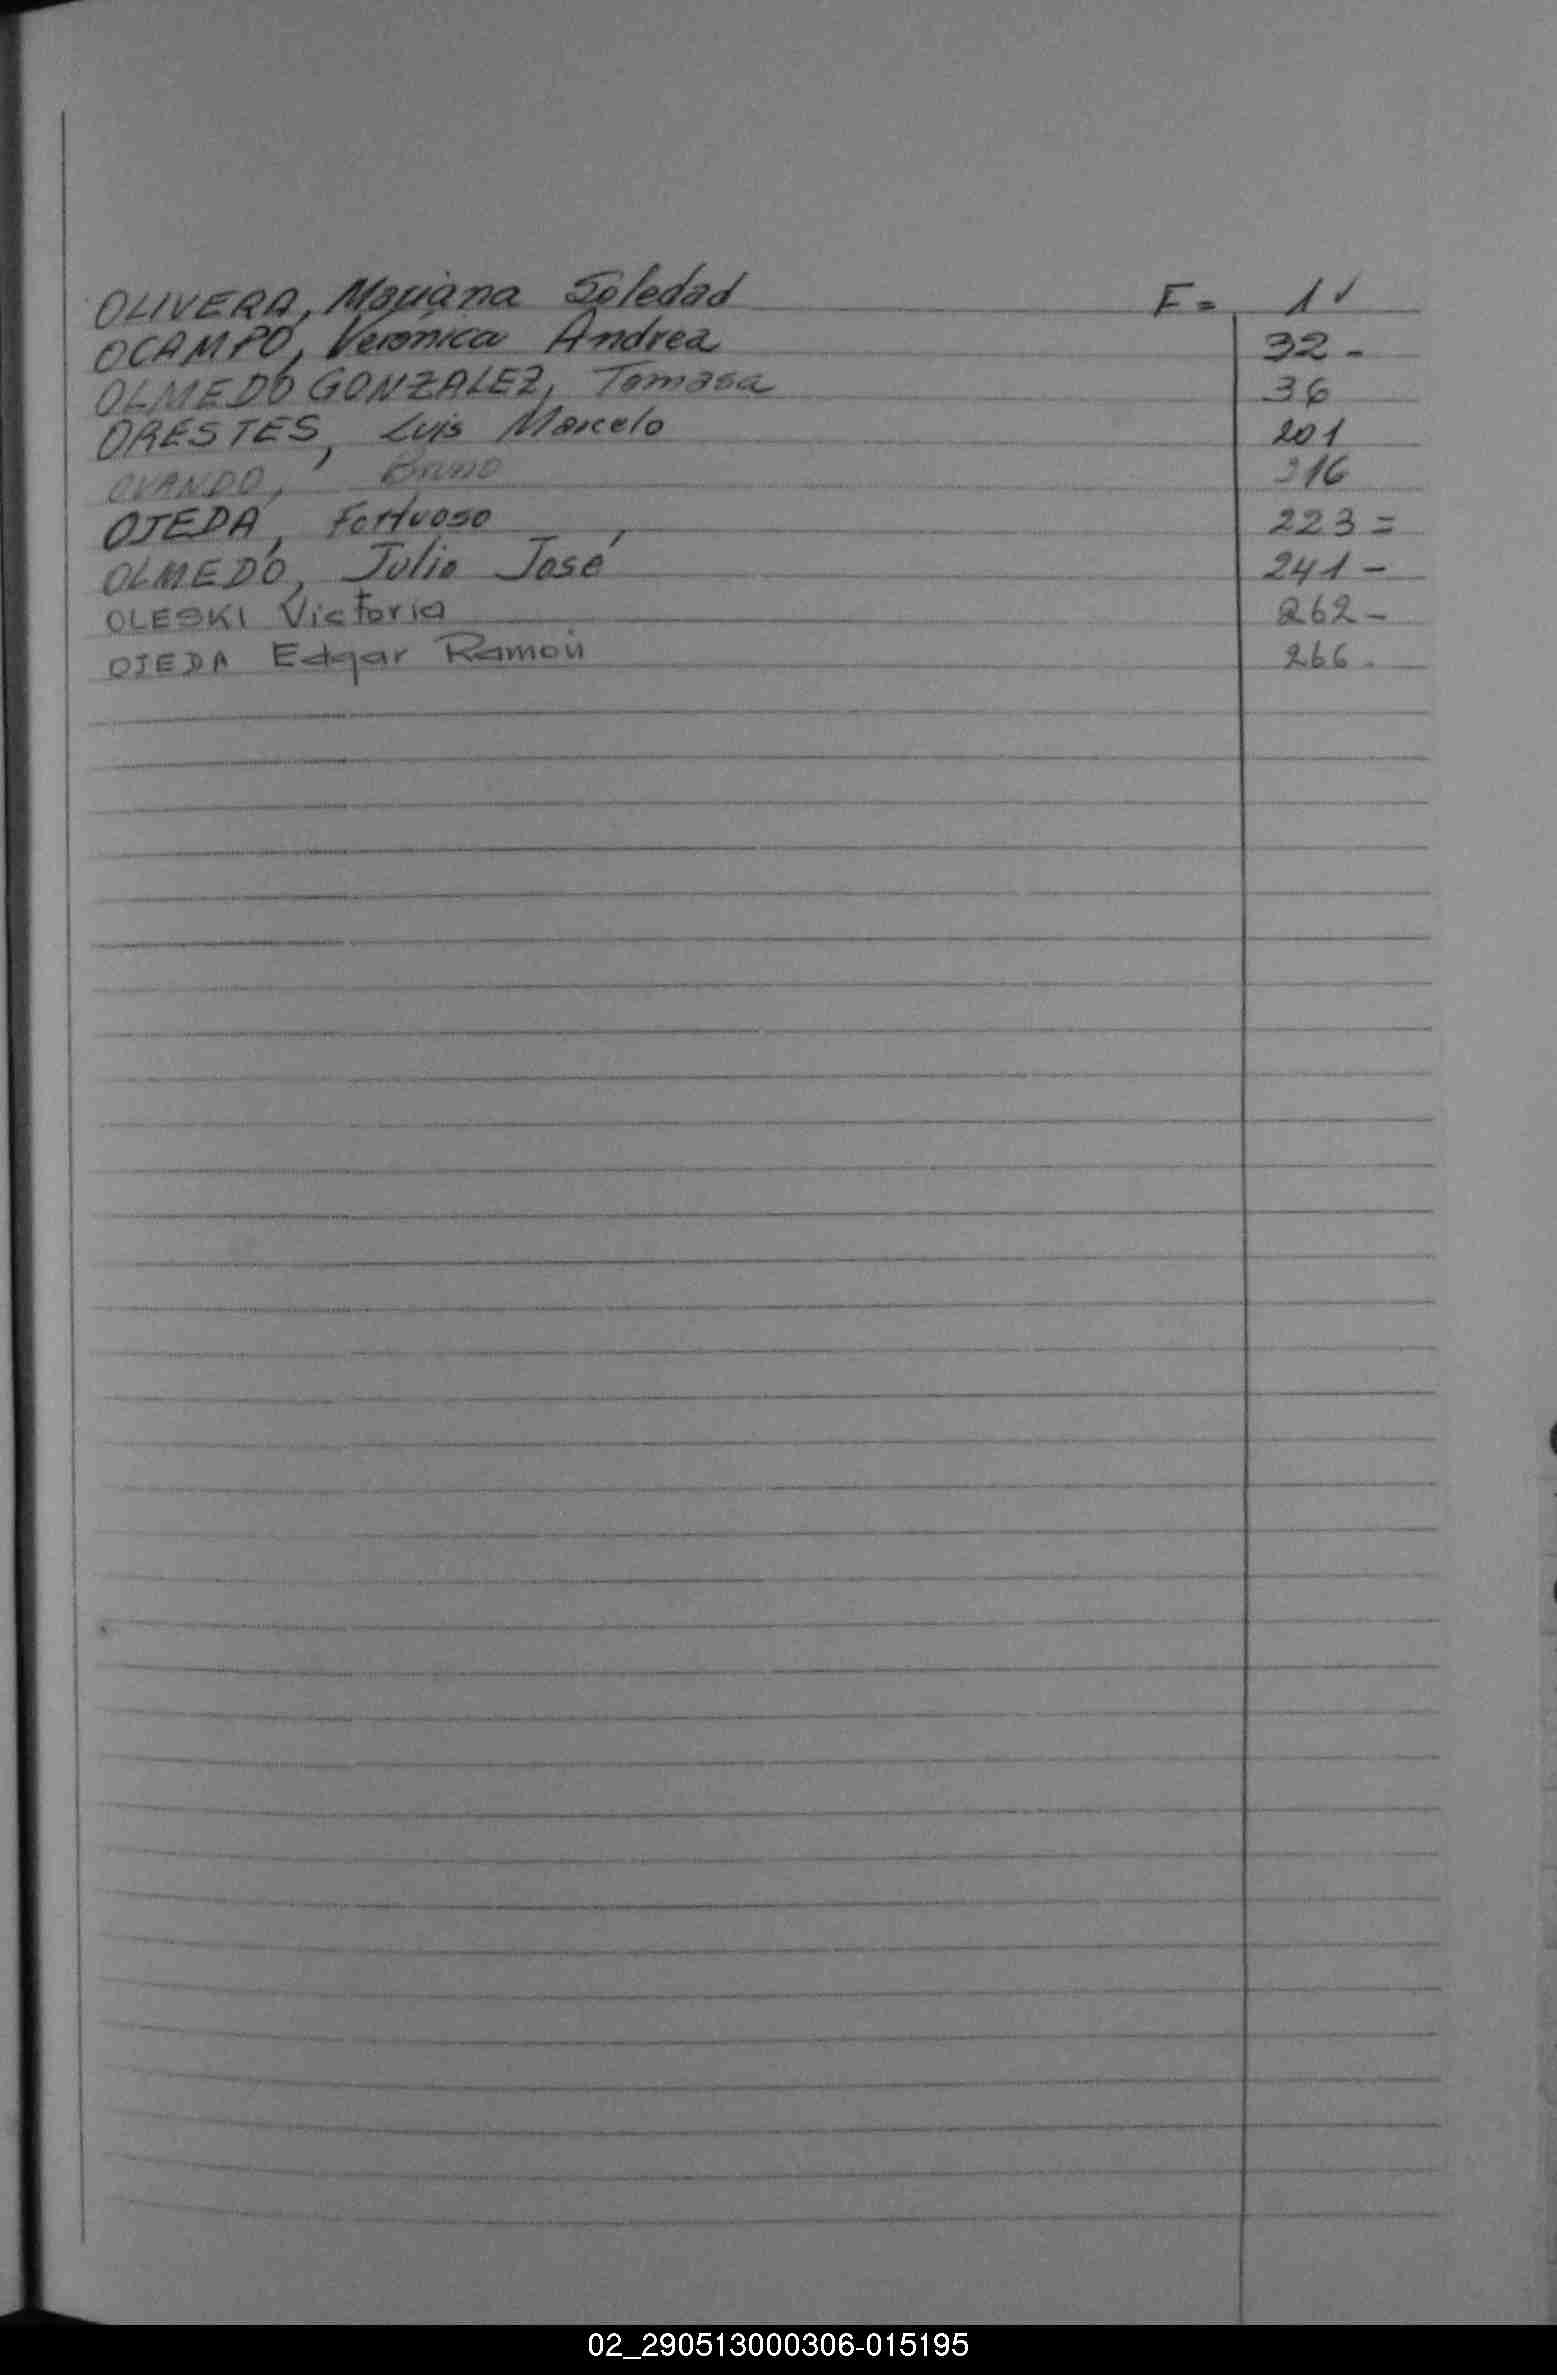 OLIVERA, Mariana Soledad F= 1✓
OCAMPO, Verónica Andrea 32-
OLMEDO GONZALEZ, Tomasa 36
ORESTES, Luis Marcelo 201
OVANDO, Bruno 216
OJEDA, Fortuoso 223=
OLMEDO, Julio José 241-
OLESKI Victoria 262-
OJEDA Edgar Ramón 266.
02_290513000306-015195